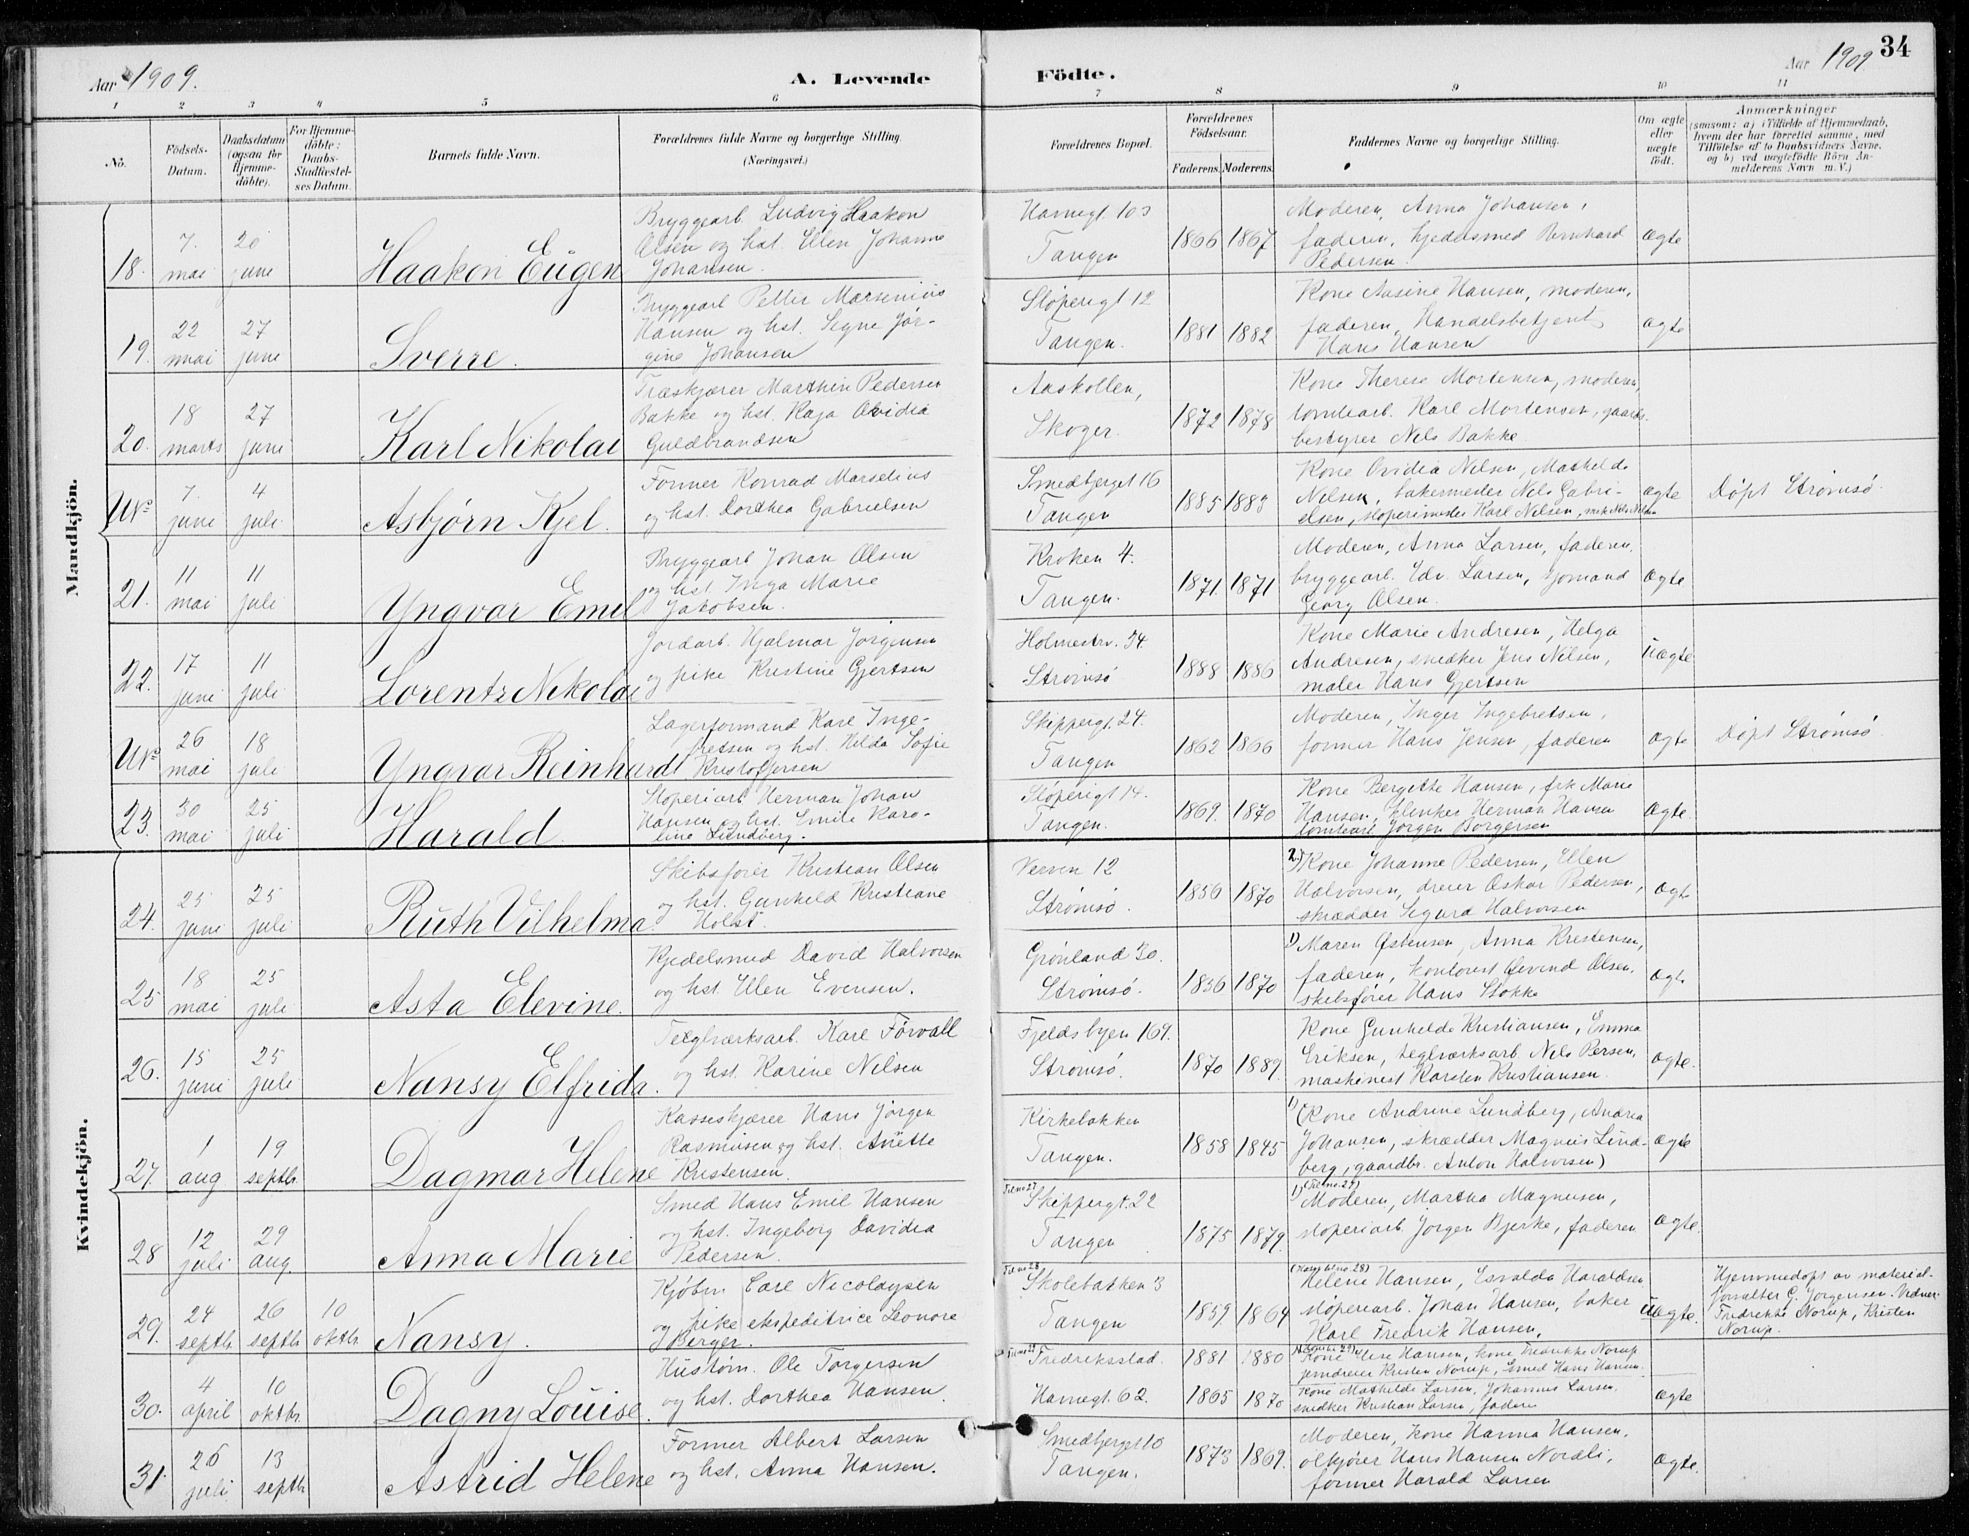 Aar 1909.
A. Levende Födte.
Aar 1909 34
1 2 3 4 5 6 7 8 9 10 11
No.
Födsels-Datum.
Daabsdatum (ogsaa for Hjemme-döbte).
For Hjemme-döbte: Daabs-Stadfæstel-ses Datum.
Barnets fulde Navn.
Forældrenes fulde Navne og borgerlige Stilling. (Næringsvei.)
Forældrenes Bopæl.
Forældrenes Födselsaar.
Faderens. Moderens.
Faddernes Navne og borgerlige Stilling.
Om ægte eller uægte födt.
Anmærkninger
(saasom: a) i Tilfælde af Hjemmedaab, hvem der har forrettet samme, med Tilföielse af to Daabsvidners Navne, og b) ved uægtefödte Börn An-melderens Navn m.V.)
Mandkjön.
18. 7. mai 20 june Haakon Eugen
Bryggearb Ludvig Haakon
Olsen og hst. Ellen Johanne
Johansen.
Havnegt. 103
Tangen
1866 1867
Moderen, Anna Johansen,
faderen, kjedelsmed Bernhard
Pedersen.
ægte
19. 22 mai 27 june Sverre.
Bryggearb Petter Marsenius
Hansen og hst. Signe Jør-
gine Johansen
Sloperigt 12
Tangen.
1881 1882
Kone Aasine Hansen, moderen,
faderen, Handelsbetjent
Hans Hansen
ægte
20. 18 marts 27 june Karl Nikolai
Træskjærer Marthin Pedersen
Bakke og hst. Kaja Ovidia
Guldbrandsen
Aaskollen,
Skoger.
1872 1878
Kone Therese Mortensen, moderen,
tomtearb. Karl Mortensen, gaards-
bestyrer Nils Bakke.
Nr 7. juni 4 juli Asbjørn Kjel.
Former Konrad Marselius
og hst. Dorthea Gabrielsen
Smedbjerget 16
Tangen
1885 1883
Kone Ovidia Nilsen, Mathilde
Nilsen, bakermester Nils Gabri-
elsen, sloperimester Karl Nilsen, snek Nils Nilsen
ægte
Døpt Strømsø.
21. 11 mai 11 juli Yngvar Emil
Bryggearb Johan Olsen
og hst Inga Marie
Jakobsen.
Kroken 4.
Tangen.
1871. 1871
Moderen, Anna Larsen, faderen,
bryggearb. Edv. Larsen, sjomand
Georg Olsen.
ægte
22. 17 juni 11 juli Lorentz Nikolai
Jordarb. Hjalmar Jørgensen
og pike Kristine Gjertsen
Holmestrv. 54.
Strømsø
1888 1886
Kone Marie Andresen, Helga
Andresen, snedker Jens Nilsen,
maler Hans Gjertsen
uægte
Nr 26 mai 18 juli Yngvar Reinhardt
Lagerformand Karl Inge-
bretsen og hst. Hilda Sofie
Kristoffersen
Skippergt. 24.
Tangen
1862 1866
Moderen, Inger Ingebretsen,
former Hans Jensen, faderen
ægte
Døpt Strømsø.
23. 30 mai 25 juli Harald
Sloperiarb Herman Johan
Hansen og hst. Emile Karo-
line Lundberg.
Sloperigt 14.
Tangen.
1869. 1870
Kone Bergitte Hansen, frk Marie
Hansen, klinker Herman Hansen
tomtearb Jørgen Borgersen
ægte.
Kvindekjön.
24. 25 juni 25 juli Ruth Vilhelma
Skibsfører Kristian Olsen
og hst. Gunhild Kristiane
Holst.
Verven 12
Strømsø.
1856 1870
2.) Kone Johanne Pedersen, Ellen
Halvorsen, dreier Oskar Pedersen,
skrædder Sigurd Halvorsen
ægte
25 18 mai 25 juli Asta Elevine.
Kjedelsmed David Halvorsen
og hst. Ellen Evensen.
Grønland 30.
Strømsø.
1856 1870
1) Maren Østensen, Anna Kristensen,
faderen, kontorist Øivind Olsen.
skibsfører Hans Stokke
ægte
26. 15 juni 25 juli Nansy Elfrida.
Teglværksarb. Karl Förvall
og hst. Karine Nilsen
Fjeldsbyen 169.
Strømsø.
1870 1889.
Kone Gunhilde Kristiansen, Emma
Eriksen, teglværksarb. Nils Persen,
maskinist Karsten Kristiansen.
ægte.
27. 1 aug 19 septbr. Dagmar Helene
Kasseskjærer Hans Jørgen
Rasmusen og hst. Anette
Kristensen.
Kirkebakken
Tangen.
1858 1845
1) (Kone Andrine Lundberg, Andrea
Johansen, skrædder Magnus Lund-
berg, gaardbr. Anton Halvorsen)
ægte
28 12 juli 29 aug. Anna Marie
Smed Hans Emil Hansen
og hst. Ingeborg Davidia
Pedersen.
Til no 27
Skippergt. 22
Tangen
1875 1879.
(Til no. 27)
1) Moderen, Martha Magnusen,
sloperiarb Jørgen Bjerke, faderen
ægte.
29. 24 septbr. 26 septbr. 10 oktbr. Nansy.
Kjøbm Carl Nicolaysen
og pike ekspeditrice Leonore
Berger.
Til no 28
Skolebakken 3
Tangen
1859 1864
Helene Hansen, Esvalda Haraldsen
sloperiarb. Johan Hansen, baker
Karl Fredrik Hansen.
uægte.
Hjemmedøpt av material-
forvalter C. Jørgensen. Vidner:
Fredrikke Norup, Kristen
Norup.
30. 4 april 10 oktbr. Dagny Louise.
Hustøm. Ole Torgersen
og hst. Dorthea Hansen.
Fredriksstad. 1881 1880
Kone Elise Hansen, kone Fredrikke Norup
jerndreier Kristen Norup, Smed Hans Hansen.
Havnegt. 62. 1865 1870
Kone Mathilde Larsen, Johannes Larsen,
snedker Kristian Larsen, faderen
ægte
31. 26 juli. 13 septbr Astrid Helene
Former Albert Larsen
og hst. Anna Hansen.
Smedbjerget 10
Tangen.
1873 1869.
Moderen, kone Hanna Hansen.
olkjører Hans Hansen Nordli,
former Harald Larsen
ægte.